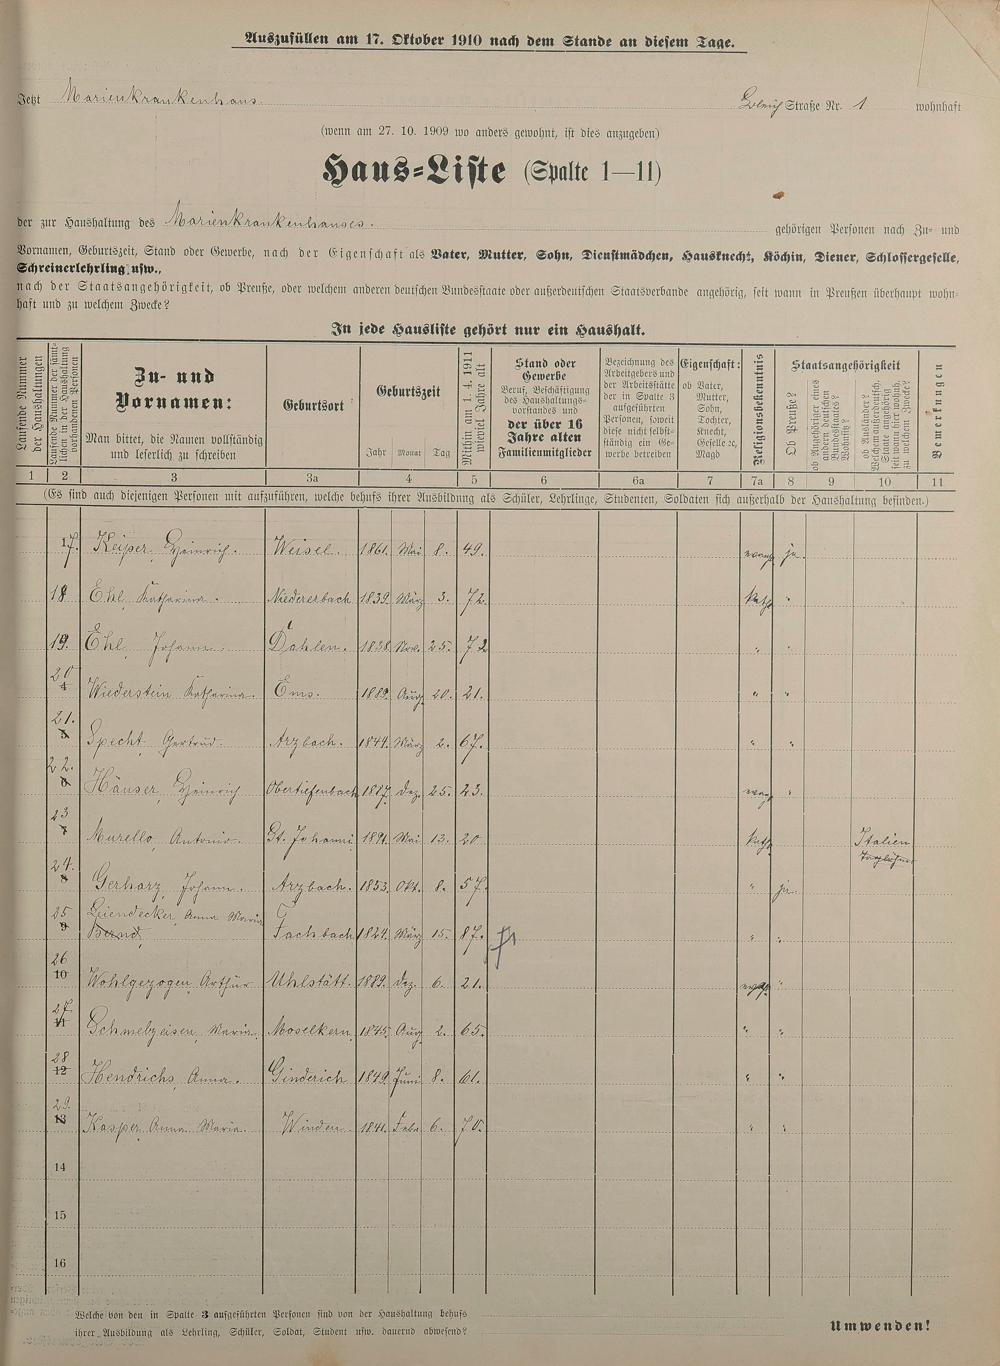 Auszufüllen am 17. Oktober 1910 nach dem Stande an diesem Tage.
Jetzt Marienkrankenhaus. Straße Nr. 1 wohnhaft
(wenn am 27. 10. 1909 wo anders gewohnt, ist dies anzugeben)
Haus-Liste (Spalte 1—11)
der zur Haushaltung des Marienkrankenhauses. gehörigen Personen nach Zu- und
Vornamen, Geburtszeit, Stand oder Gewerbe, nach der Eigenschaft als Vater, Mutter, Sohn, Dienstmädchen, Hausknecht, Köchin, Diener, Schlossergeselle,
Schreinerlehrling usw.,
nach der Staatsangehörigkeit, ob Preuße, oder welchem anderen deutschen Bundesstaate oder außerdeutschen Staatsverbande angehörig, seit wann in Preußen überhaupt wohn-
haft und zu welchem Zwecke?
In jede Hausliste gehört nur ein Haushalt.
Laufende Nummer der Haushaltungen
Laufende Nummer der sämt-
lichen in der Haushaltung
vorhandenen Personen
Zu- und
Vornamen:
Man bittet, die Namen vollständig
und leserlich zu schreiben
Geburtsort
Geburtszeit
Jahr Monat Tag
Mithin am 1. 4. 1911
wieviel Jahre alt
Stand oder
Gewerbe
Beruf, Beschäftigung
des Haushaltungs-
vorstandes und
der über 16
Jahre alten
Familienmitglieder
Bezeichnung des
Arbeitgebers und
der Arbeitsstätte
der in Spalte 3
aufgeführten
Personen, soweit
diese nicht selbst-
ständig ein Ge-
werbe betreiben
Eigenschaft:
ob Vater,
Mutter,
Sohn,
Tochter,
Knecht,
Geselle ec,
Magd
Religionsbekenntnis
Staatsangehörigkeit
Ob Preuße?
ob Angehöriger eines
andern deutschen
Bundesstaates?
Wohnsitz?
ob Ausländer?
Welchem außerdeutsch.
Staate angehörig
seit wann hier wohnh.
zu welchem Zweck?
Bemerkungen
1 2 3 3a 4 5 6 6a 7 7a 8 9 10 11
(Es sind auch diejenigen Personen mit aufzuführen, welche behufs ihrer Ausbildung als Schüler, Lehrlinge, Studenten, Soldaten sich außerhalb der Haushaltung befinden.)
17. Keiper, Heinrich. Weisel. 1861. Mai 8. 49. evang ja.
18 Ehl, Katharina. Niedererbach 1839. März 3. 72. kath "
19. Ehl, Johann. Dahlen. 1838. Nov. 25. 72 " "
20 4 Wiederstein Katharina. Ems. 1889. Aug. 20. 21. " "
21. 5 Specht, Gertrud. Arzbach. 1844. März 2. 67. " "
22. 6 Häuser, Heinrich Obertiefenbach 1887. Dez. 25. 23. evang "
23 7 Murello, Antonio. St. Johann 1891. Mai 13. 20 kath Italien
Taglöhner
24. 8 Gerharz, Johann. Arzbach. 1853. Okt. 8. 57. " ja.
25 9 Leiendecker, Anna Maria
Bernd, Fachbach 1824. März 15. 87. " "
26 10 Wohlgezogen, Arthur Uhlstätt. 1889. Dez. 6. 21. evang. "
27. 11 Schmelzeisen, Maria. Moselkern. 1845. Aug. 2. 65. " "
28 12 Hendrichs, Anna. Ginderich 1849. Juni 8. 61. " "
29. 13 Kasper, Anna Maria. Winden. 1841. Febr. 6. 70. " "
14
15
16
Welche von den in Spalte 3 aufgeführten Personen sind von der Haushaltung behufs
ihrer Ausbildung als Lehrling, Schüler, Soldat, Student usw. dauernd abwesend?
Umwenden!